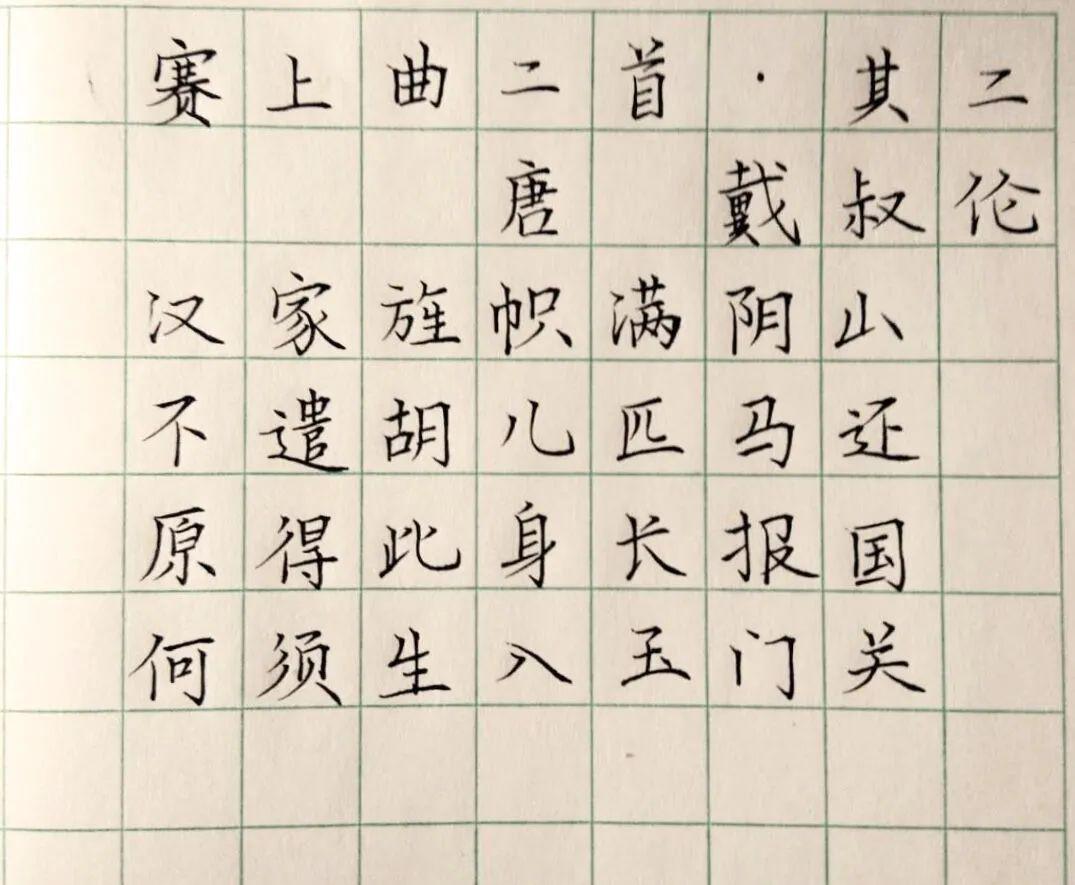 赛上曲二首·其二
唐 戴叔伦
汉家旌帜满阴山
不遣胡儿匹马还
原得此身长报国
何须生入玉门关